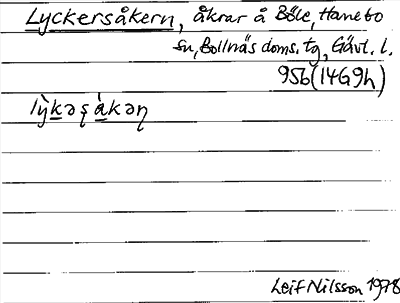 Lyckersåkern, åkrar å Böle, Hanebo
sn, Bollnäs doms. tg, Gävl. l.
95b(14G9h)
lỳkəʂ ὰkəɳ
Leif Nilsson 1978